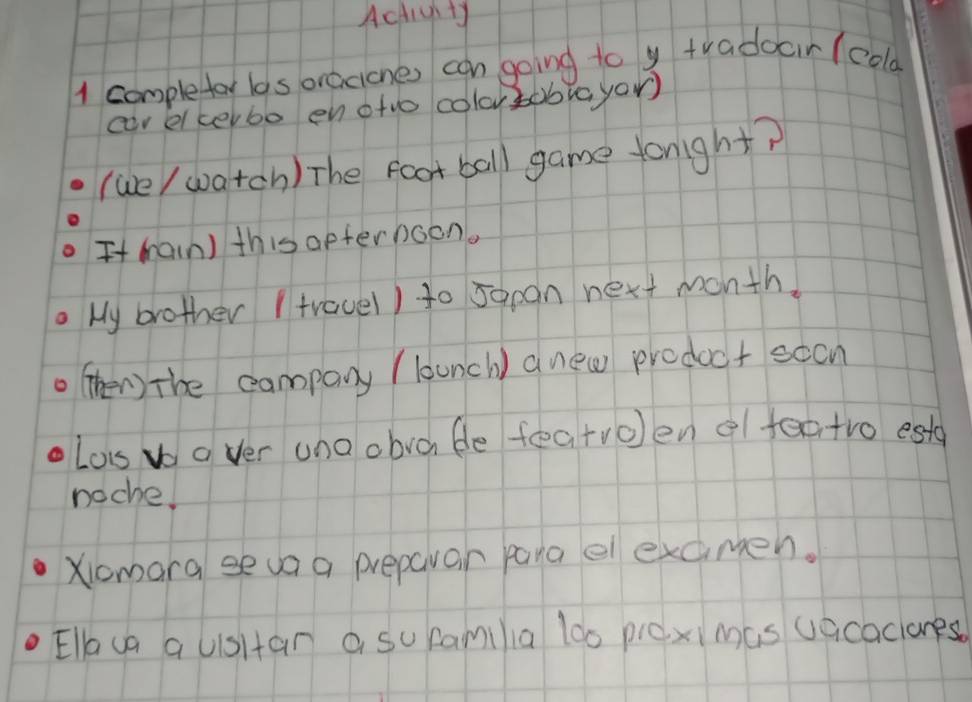 Activity
1 completar las oraciones con going to y traducir (colo
car el verbo en otro color subrayar)
• (we/watch) The Foot ball game tonight?
•
• It (rain) this apternoon.
• My brother (travel) to Japan next month.
• (Then) The company (launch) a new product soon
• Luis va a ver una obra (de teatro) en el teatro esta
noche.
• Xiomara se va a preparar para el examen.
• Ella va a visitar a su familia las próximas vacaciones.